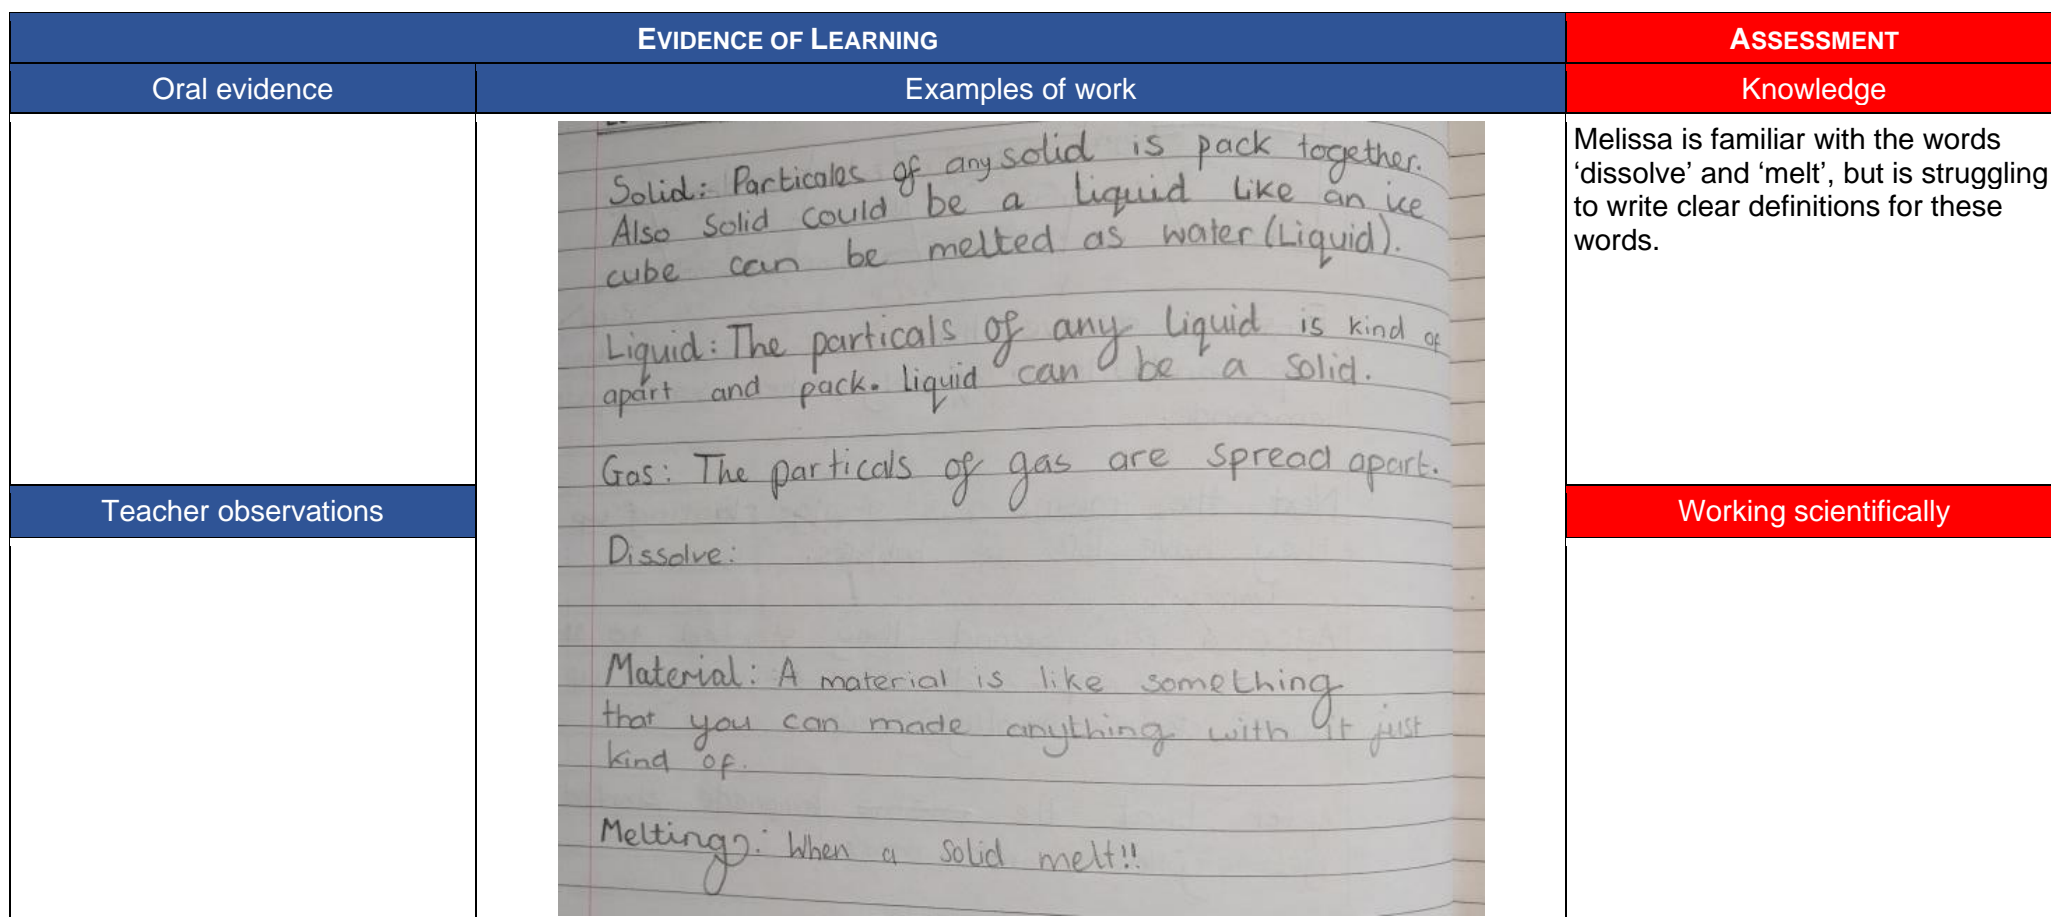 EVIDENCE OF LEARNING
ASSESSMENT
Oral evidence
Examples of work
Knowledge
Solid: Particales of any solid is pack together.
Also solid could be a liquid like an ice
cube can be melted as water (Liquid).
Liquid: The particals of any liquid is kind of
apart and pack. liquid can be a solid.
Gas: The particals of gas are spread apart.
Dissolve:
Material: A material is like something
that you can made anything with it just
kind of.
Melting: When a solid melt!!
Melissa is familiar with the words
‘dissolve’ and ‘melt’, but is struggling
to write clear definitions for these
words.
Teacher observations
Working scientifically